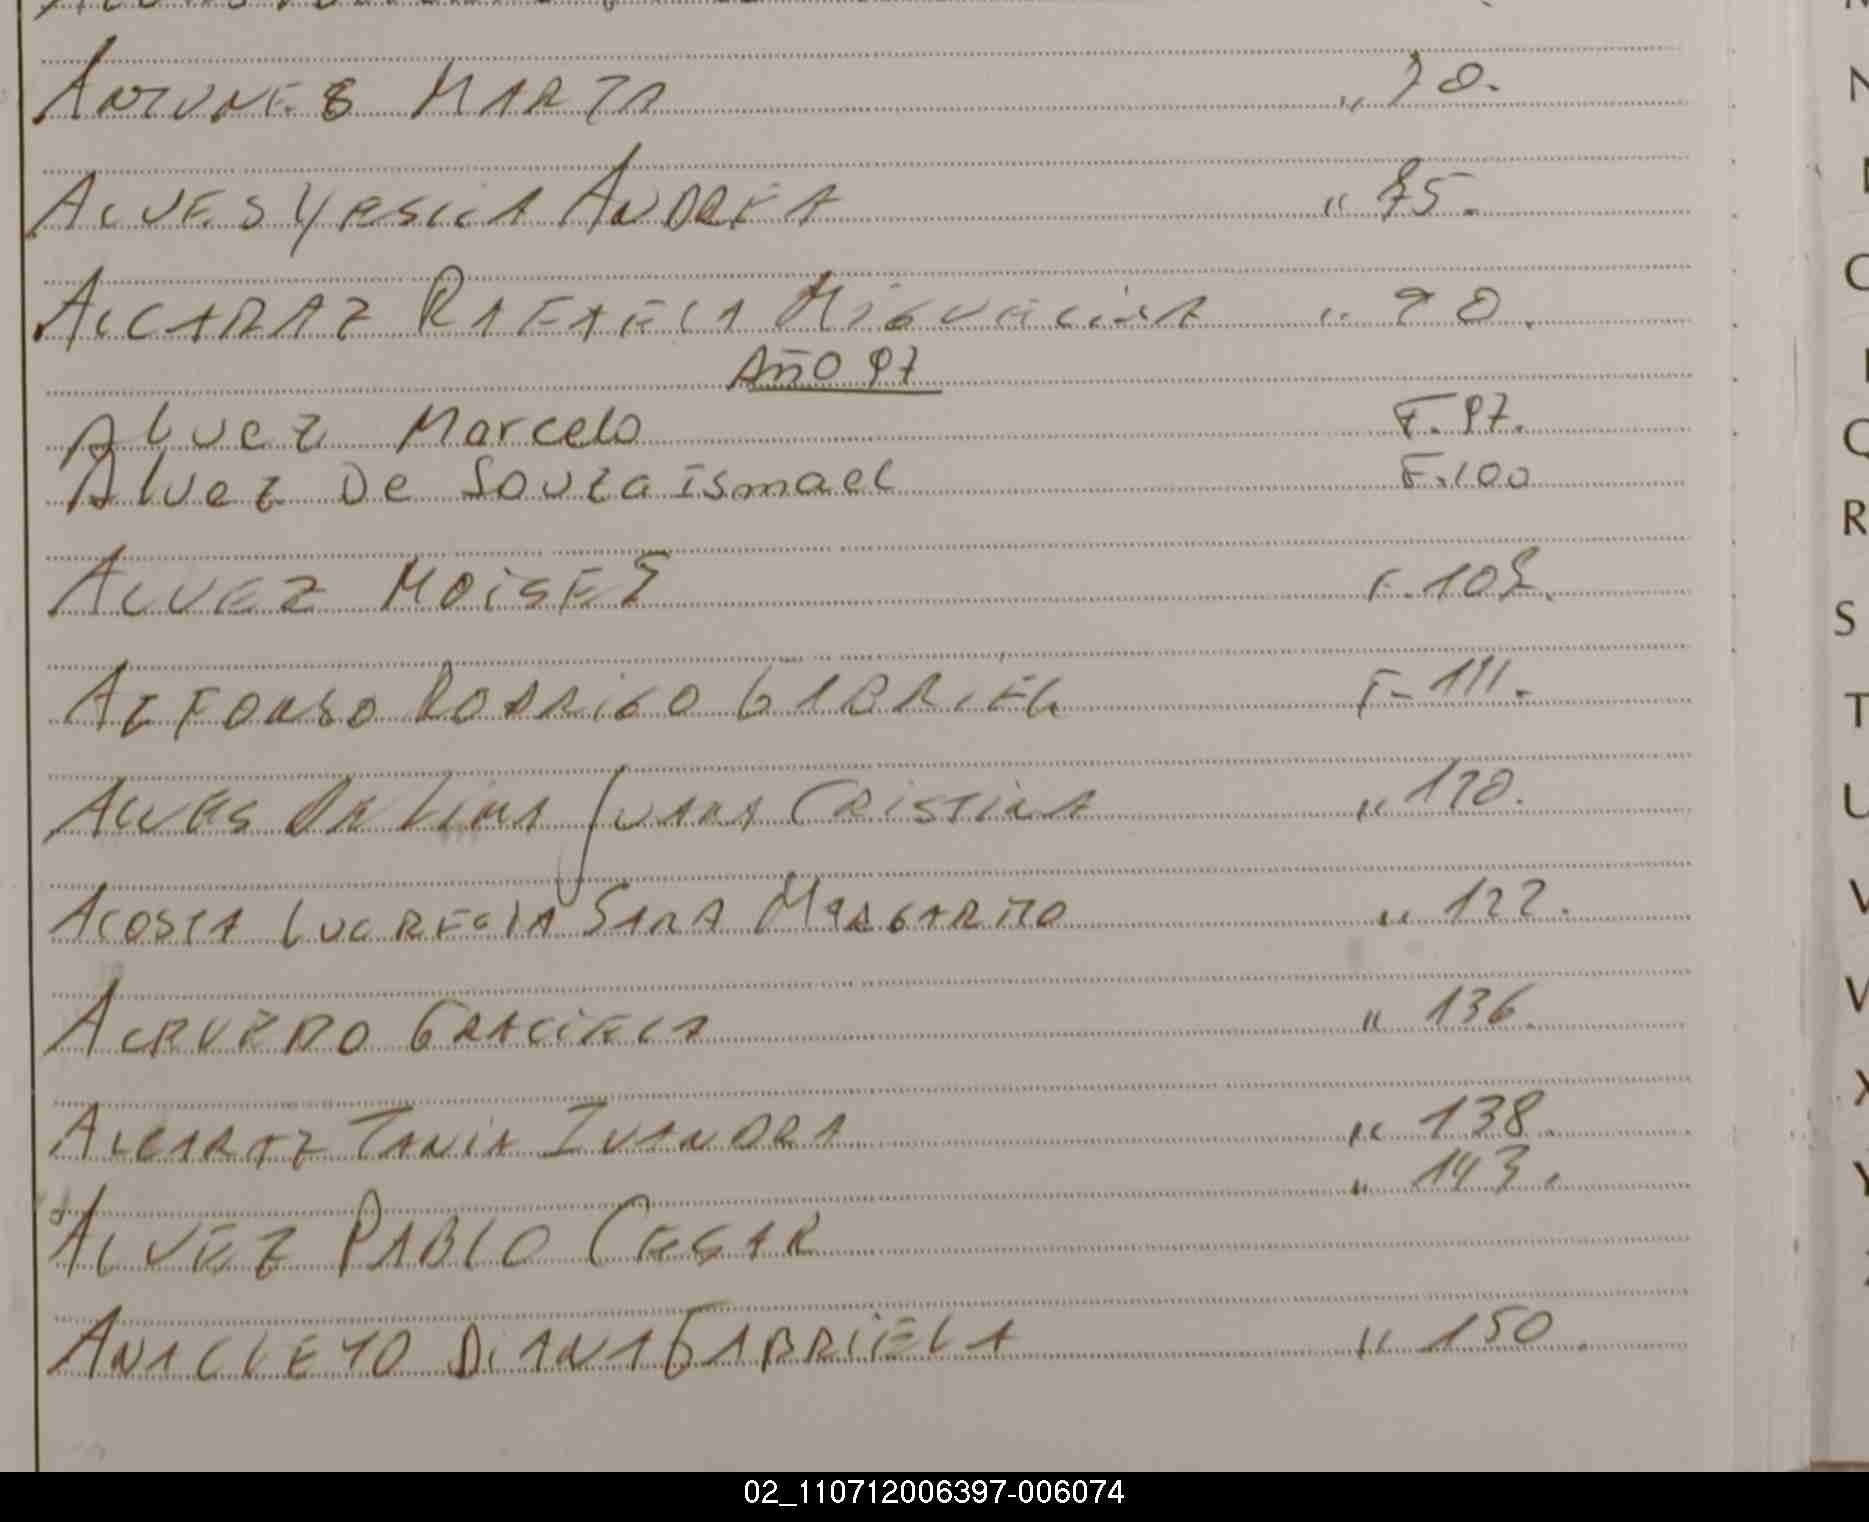 ANTUNES MARTA " 70.
ALVES YESICA ANDREA " 75.
ALCARAZ RAFAELA MIGUELINA " 90.
AÑO 97
Alvez Marcelo F. 97.
Alvez De Souza ismael F. 100
ALVEZ MOISES F. 105.
ALFONSO RODRIGO GABRIEL F- 111.
ALVES DA LIMA JUANA CRISTINA " 120.
ACOSTA LUCRECIA SARA MARGARITO " 122.
ACEVEDO GRACIELA " 136.
ALCARAZ TANIA IVANDRA " 138.
" 143.
ALVEZ PABLO CESAR
ANACLETO DIANA GABRIELA " 150.
N
C
Q
R
S
T
U
V
X
Y
02_110712006397-006074